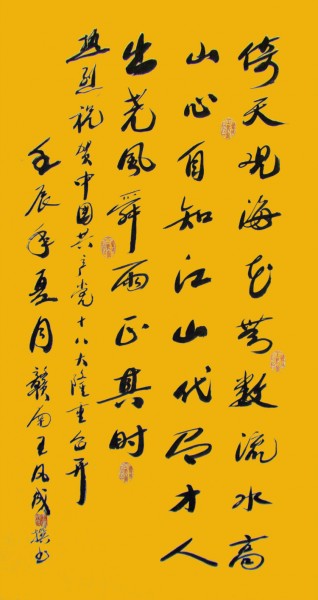 倚天观海花無数流水高
山心自知江山代有才人
出尧風舜雨正其时
热烈祝贺中国共产党十八大隆重召开
壬辰年夏月赣南王成撰书